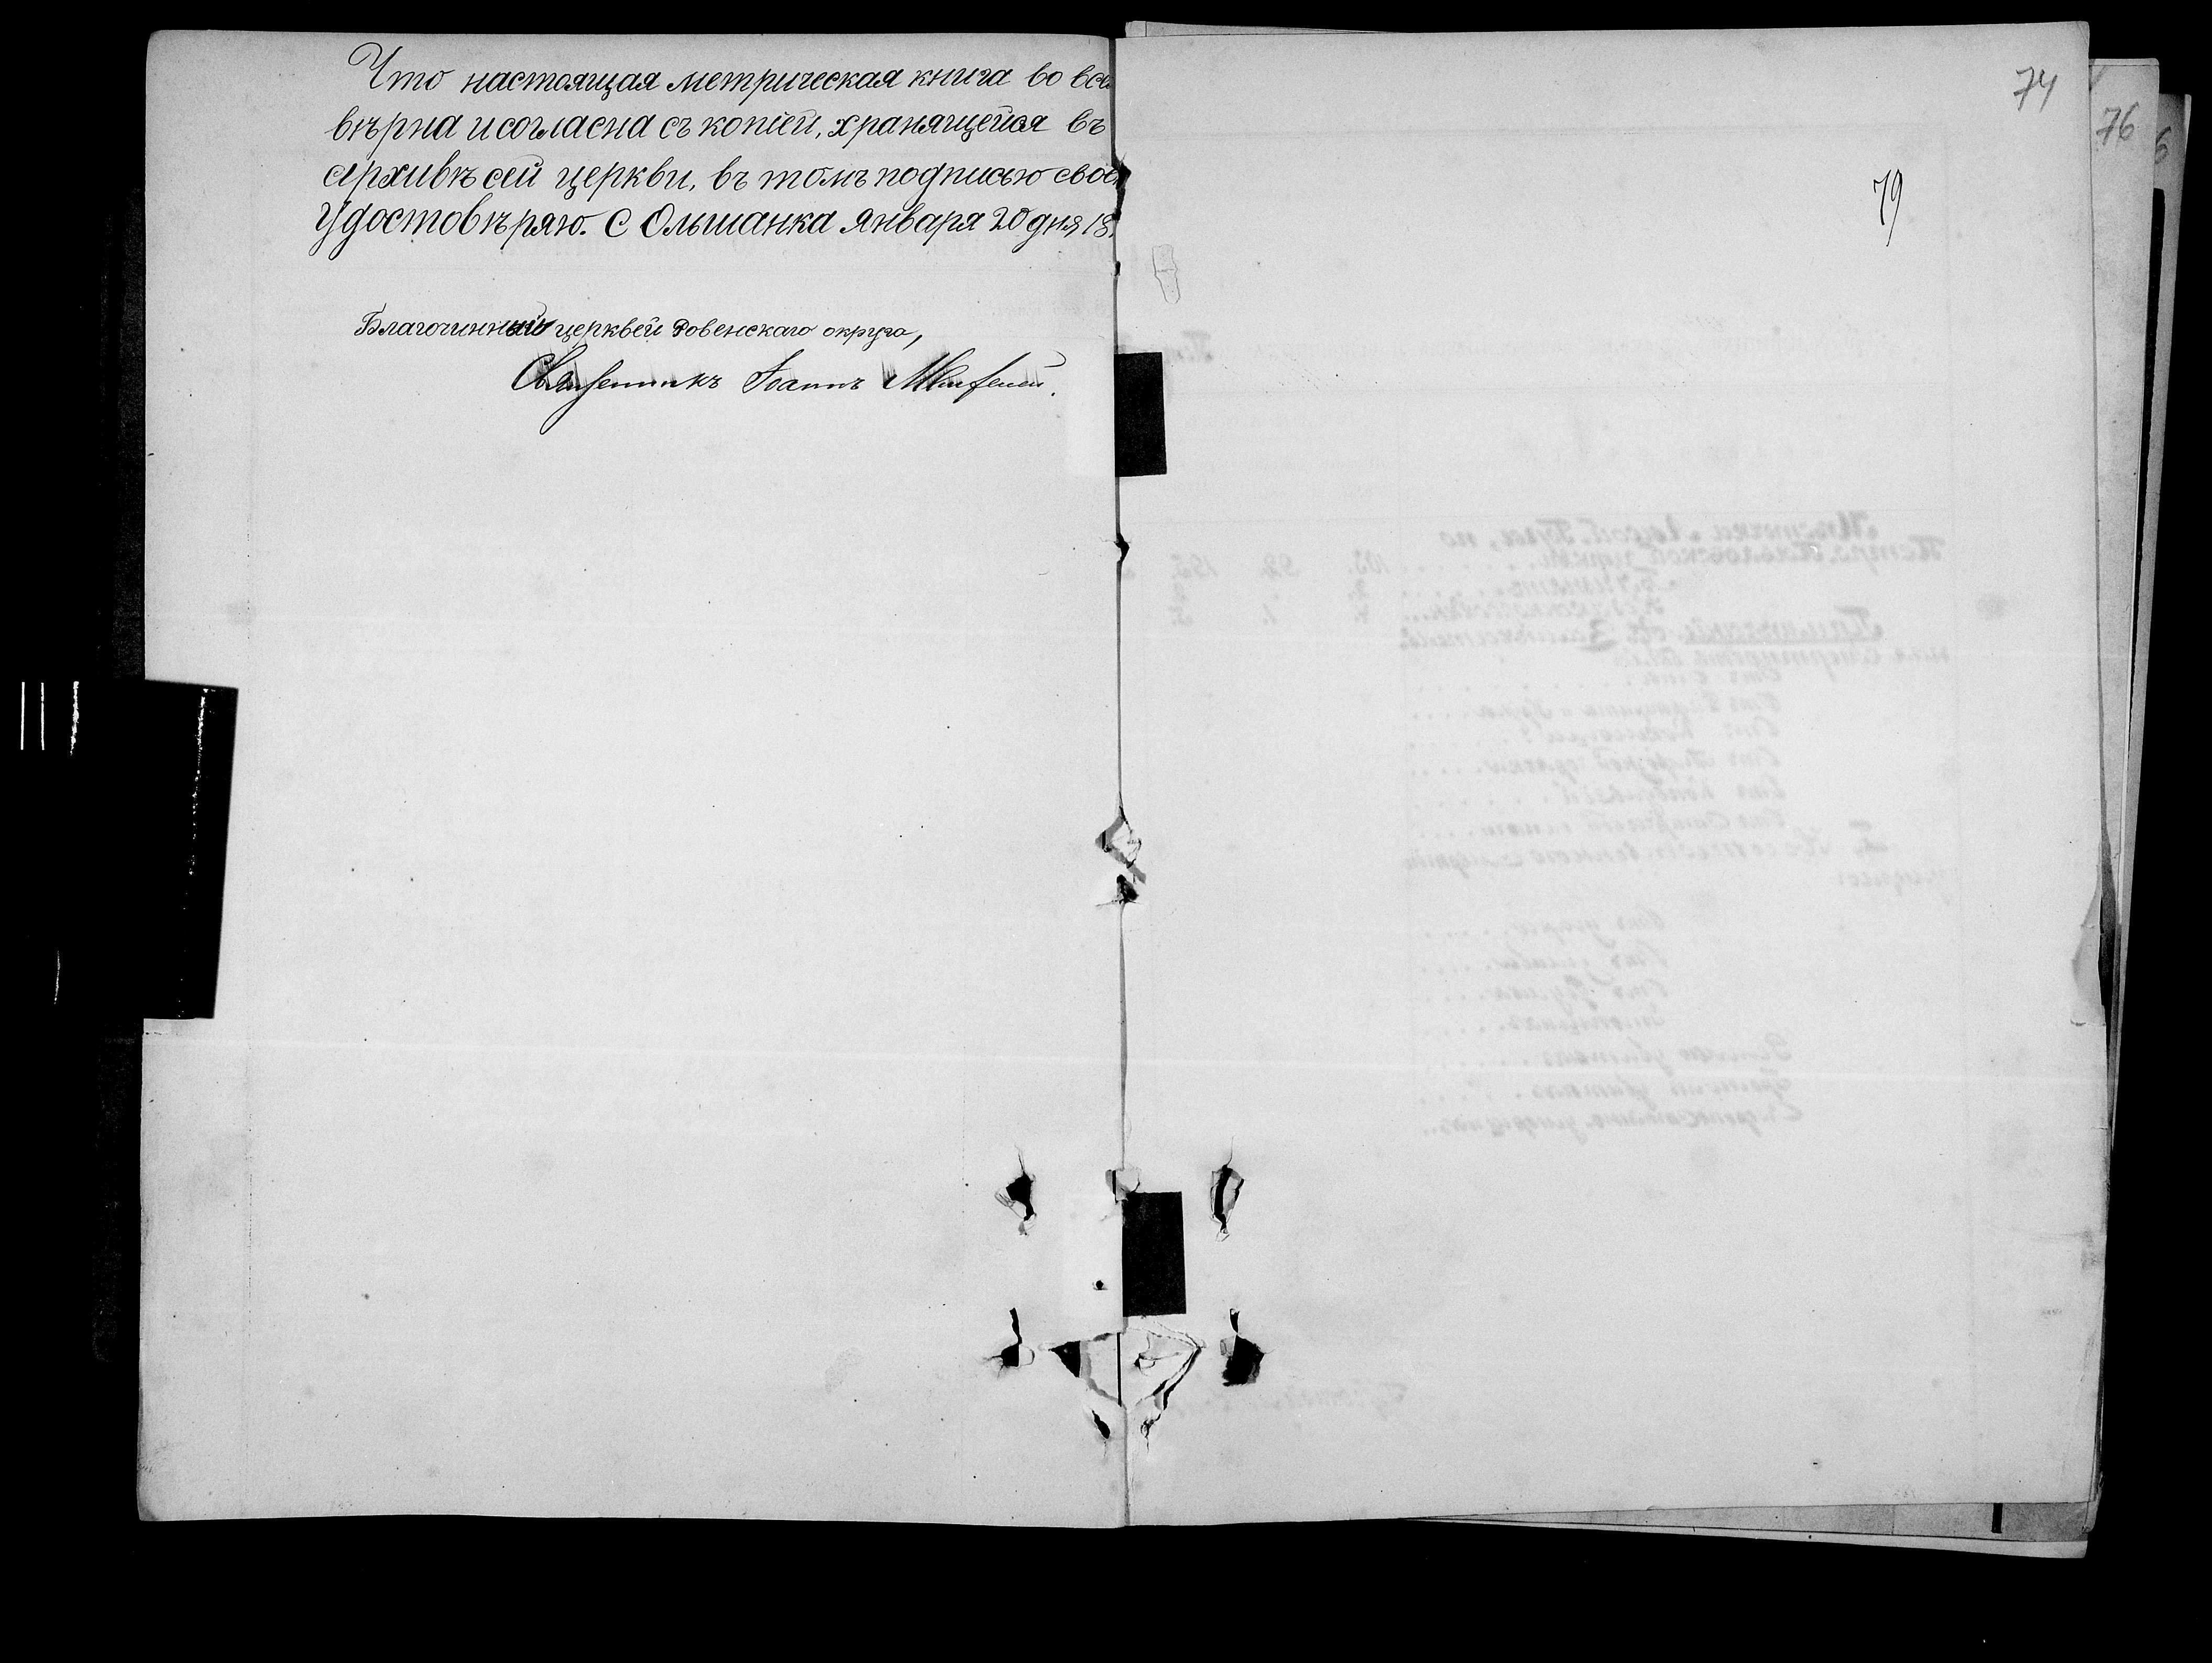 Что настоящая метрическая книга во всем
вѣрна и согласна съ копіей, хранящейся въ
архивѣ сей церкви, въ томъ подписью своею
удостовѣряю. С Ольшанка Января 20 дня 18
Благочинный церквей Ровенскаго округа,
Священникъ Іоаннъ
74
76
79